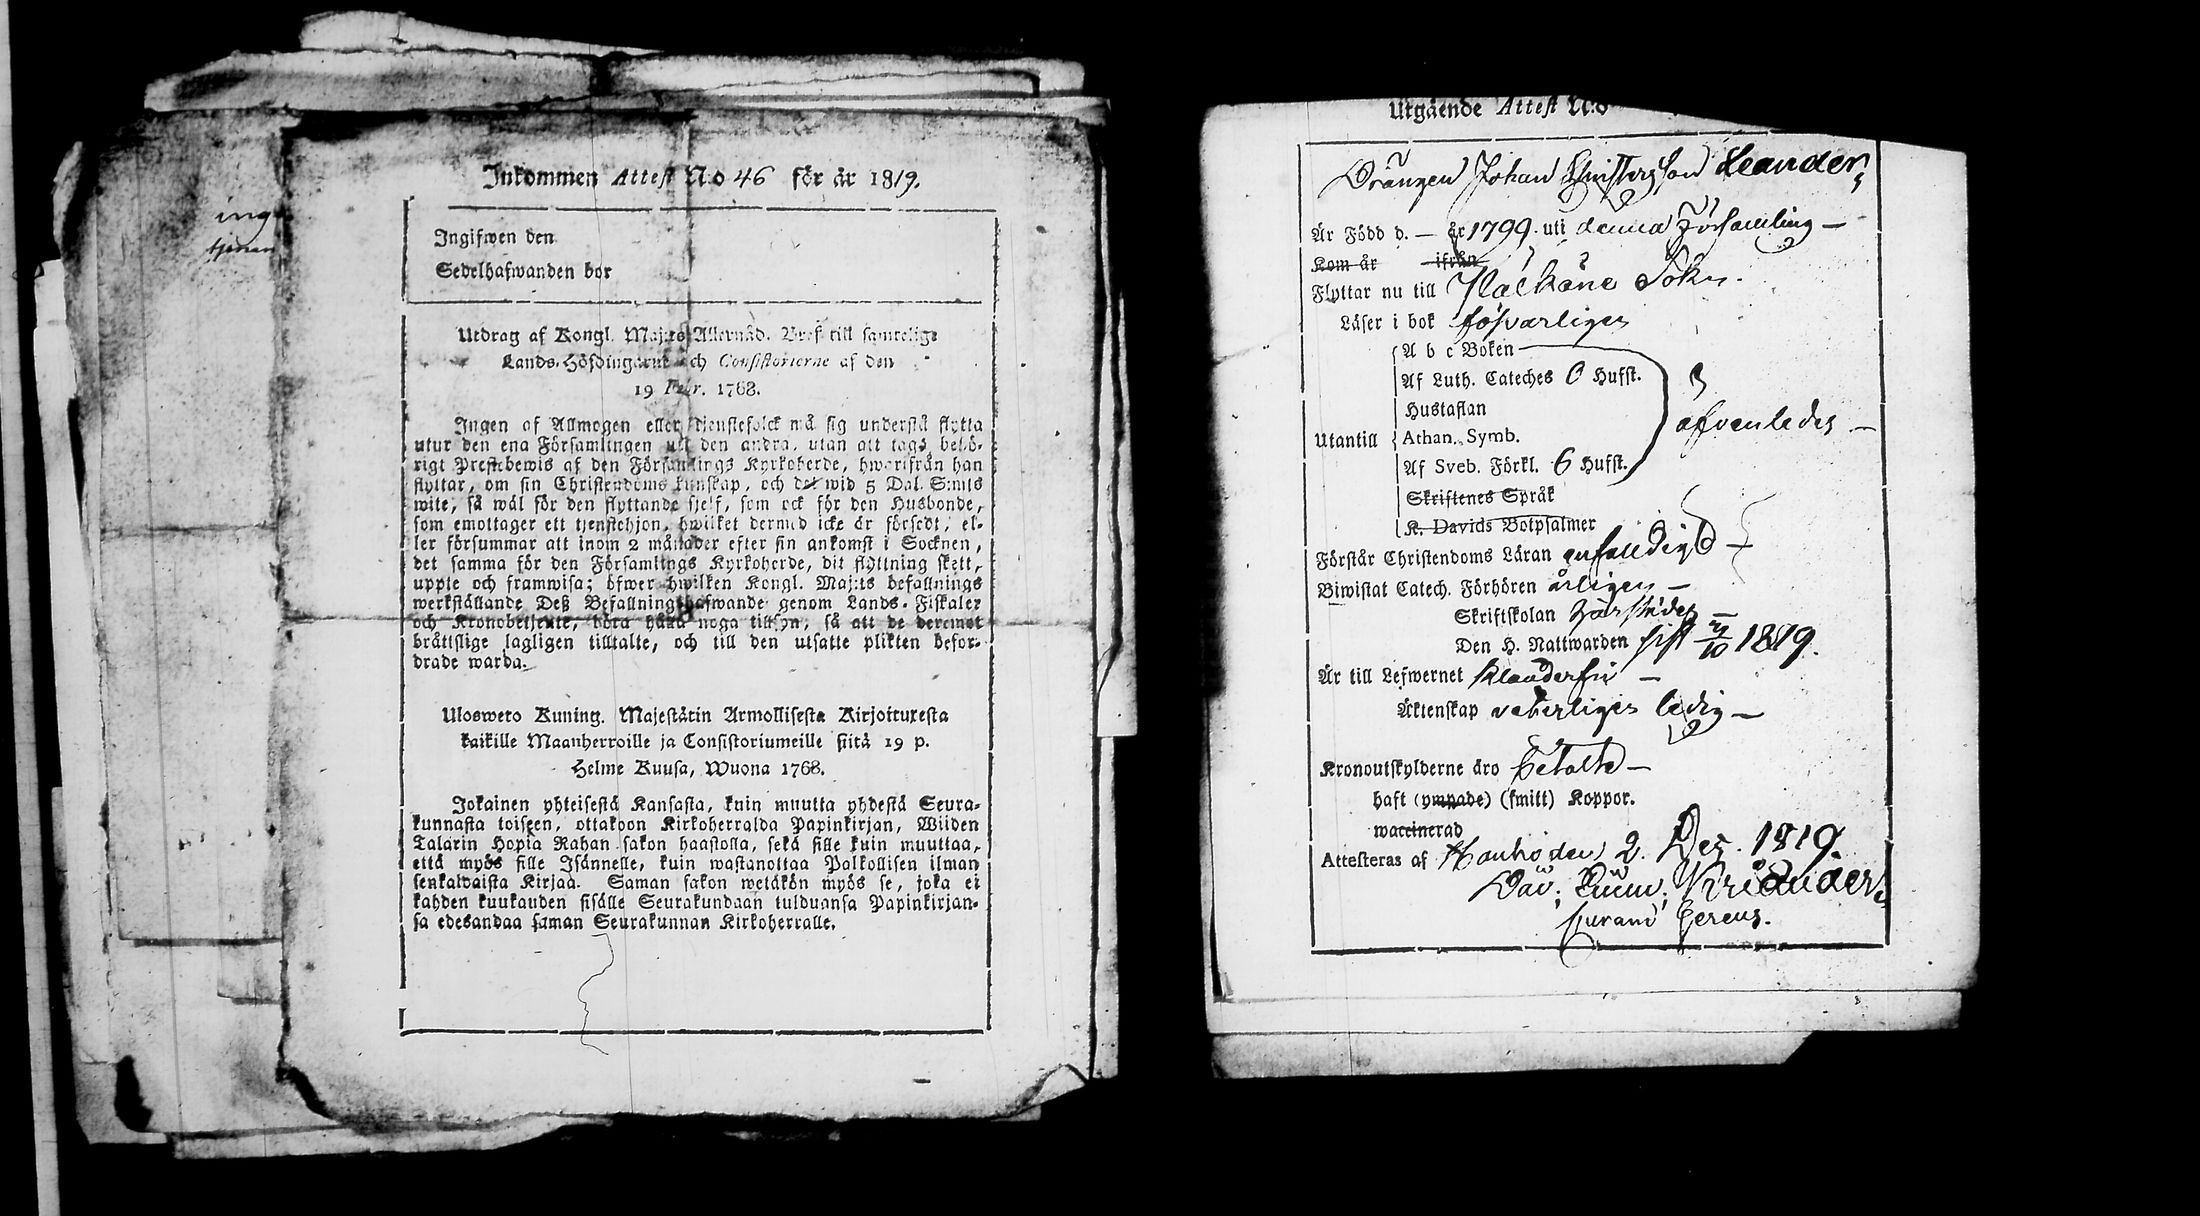 ing
tjenan
Inkommen Attest N:o 46 för år 1819.
Ingifwen den
Sedelhafwanden bor
Utdrag af Kongl. Maj:ts Allernåd. Bref till samtelige
Lands-Höfdingarne och Consistorierne af den
19 Febr. 1768.
Ingen af Allmogen eller tjenstefolck må sig understå flytta
utur den ena Församlingen till den andra, utan att taga behö-
rigt Prestebewis af den Församlings Kyrkoherde, hwarifrån han
flyttar, om sin Christendoms kunskap, och det wid 5 Dal. S:mts
wite, så wäl för den flyttande sjelf, som ock för den Husbonde,
som emottager ett tjenstehjon, hwilket dermed icke är försedt, el-
ler försummar att inom 2 månader efter sin ankomst i Socknen,
det samma för den Församlings Kyrkoherde, dit flyttning skett,
uppte och framwisa; öfwer hwilken Kongl. Maj:ts befallnings
werkställande Deß Befallningshafwande genom Lands-Fiskaler
och Kronobetjente, böra hålla noga tillsyn, så att de deremot
bråttslige lagligen tilltalte, och till den utsatte plikten befor-
drade warda.
Ulosweto Kuning. Majestätin Armollisesta Kirjoituxesta
kaikille Maanherroille ja Consistoriumeille siitä 19 p.
Helme Kuusa, Wuona 1768.
Jokainen yhteisestä Kansasta, kuin muutta yhdestä Seura-
kunnasta toiseen, ottakoon Kirkoherralda Papinkirjan, Wiiden
Talarin Hopia Rahan sakon haastolla, sekä sille kuin muuttaa,
että myös sille Isännelle, kuin wastanottaa Palkollisen ilman
senkaldaista Kirjaa. Saman sakon wetäkön myös se, joka ei
kahden kuukauden sisälle Seurakundaan tulduansa Papinkirjan-
sa edesandaa saman Seurakunnan Kirkoherralle.
Utgående Attest N:o
Drängen Johan Christersson Leander,
Är Född d. — år 1799. uti denna Församling —
Kom år ifrån
Flyttar nu till Pälkäne Sokn.
Läser i bok försvarligen
A b c Boken
Af Luth. Cateches 6 Hufst.
Hustaflan
Utantill Athan. Symb. afvenledes —
Af Sveb. Förkl. 6 Hufst.
Skriftenes Språk
K. Davids Botpsalmer
Förstår Christendoms Läran enfaldigt —
Biwistat Catech. Förhören årligen —
Skriftskolan
Den H. Nattwarden sist 1819.
Är till Lefwernet klanderfri —
Äktenskap veterligen ledig —
Kronoutskylderne äro betalte —
haft (ympade) (smitt) Koppor.
waccinerad
Attesteras af Hauho den 2. Dec. 1819.
Dav. Kriander.